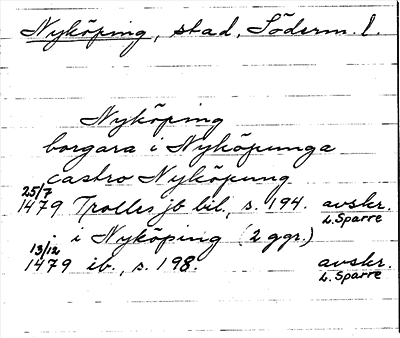 Nyköping, stad, Söderm. l.
Nyköping
borgara i Nyköpunga
castro Nyköpung
25/7
1479 Trolles jb bil., s. 194. avskr.
L. Sparre
i Nyköping (2 ggr.)
13/12
1479 ib., s. 198. avskr.
L. Sparre